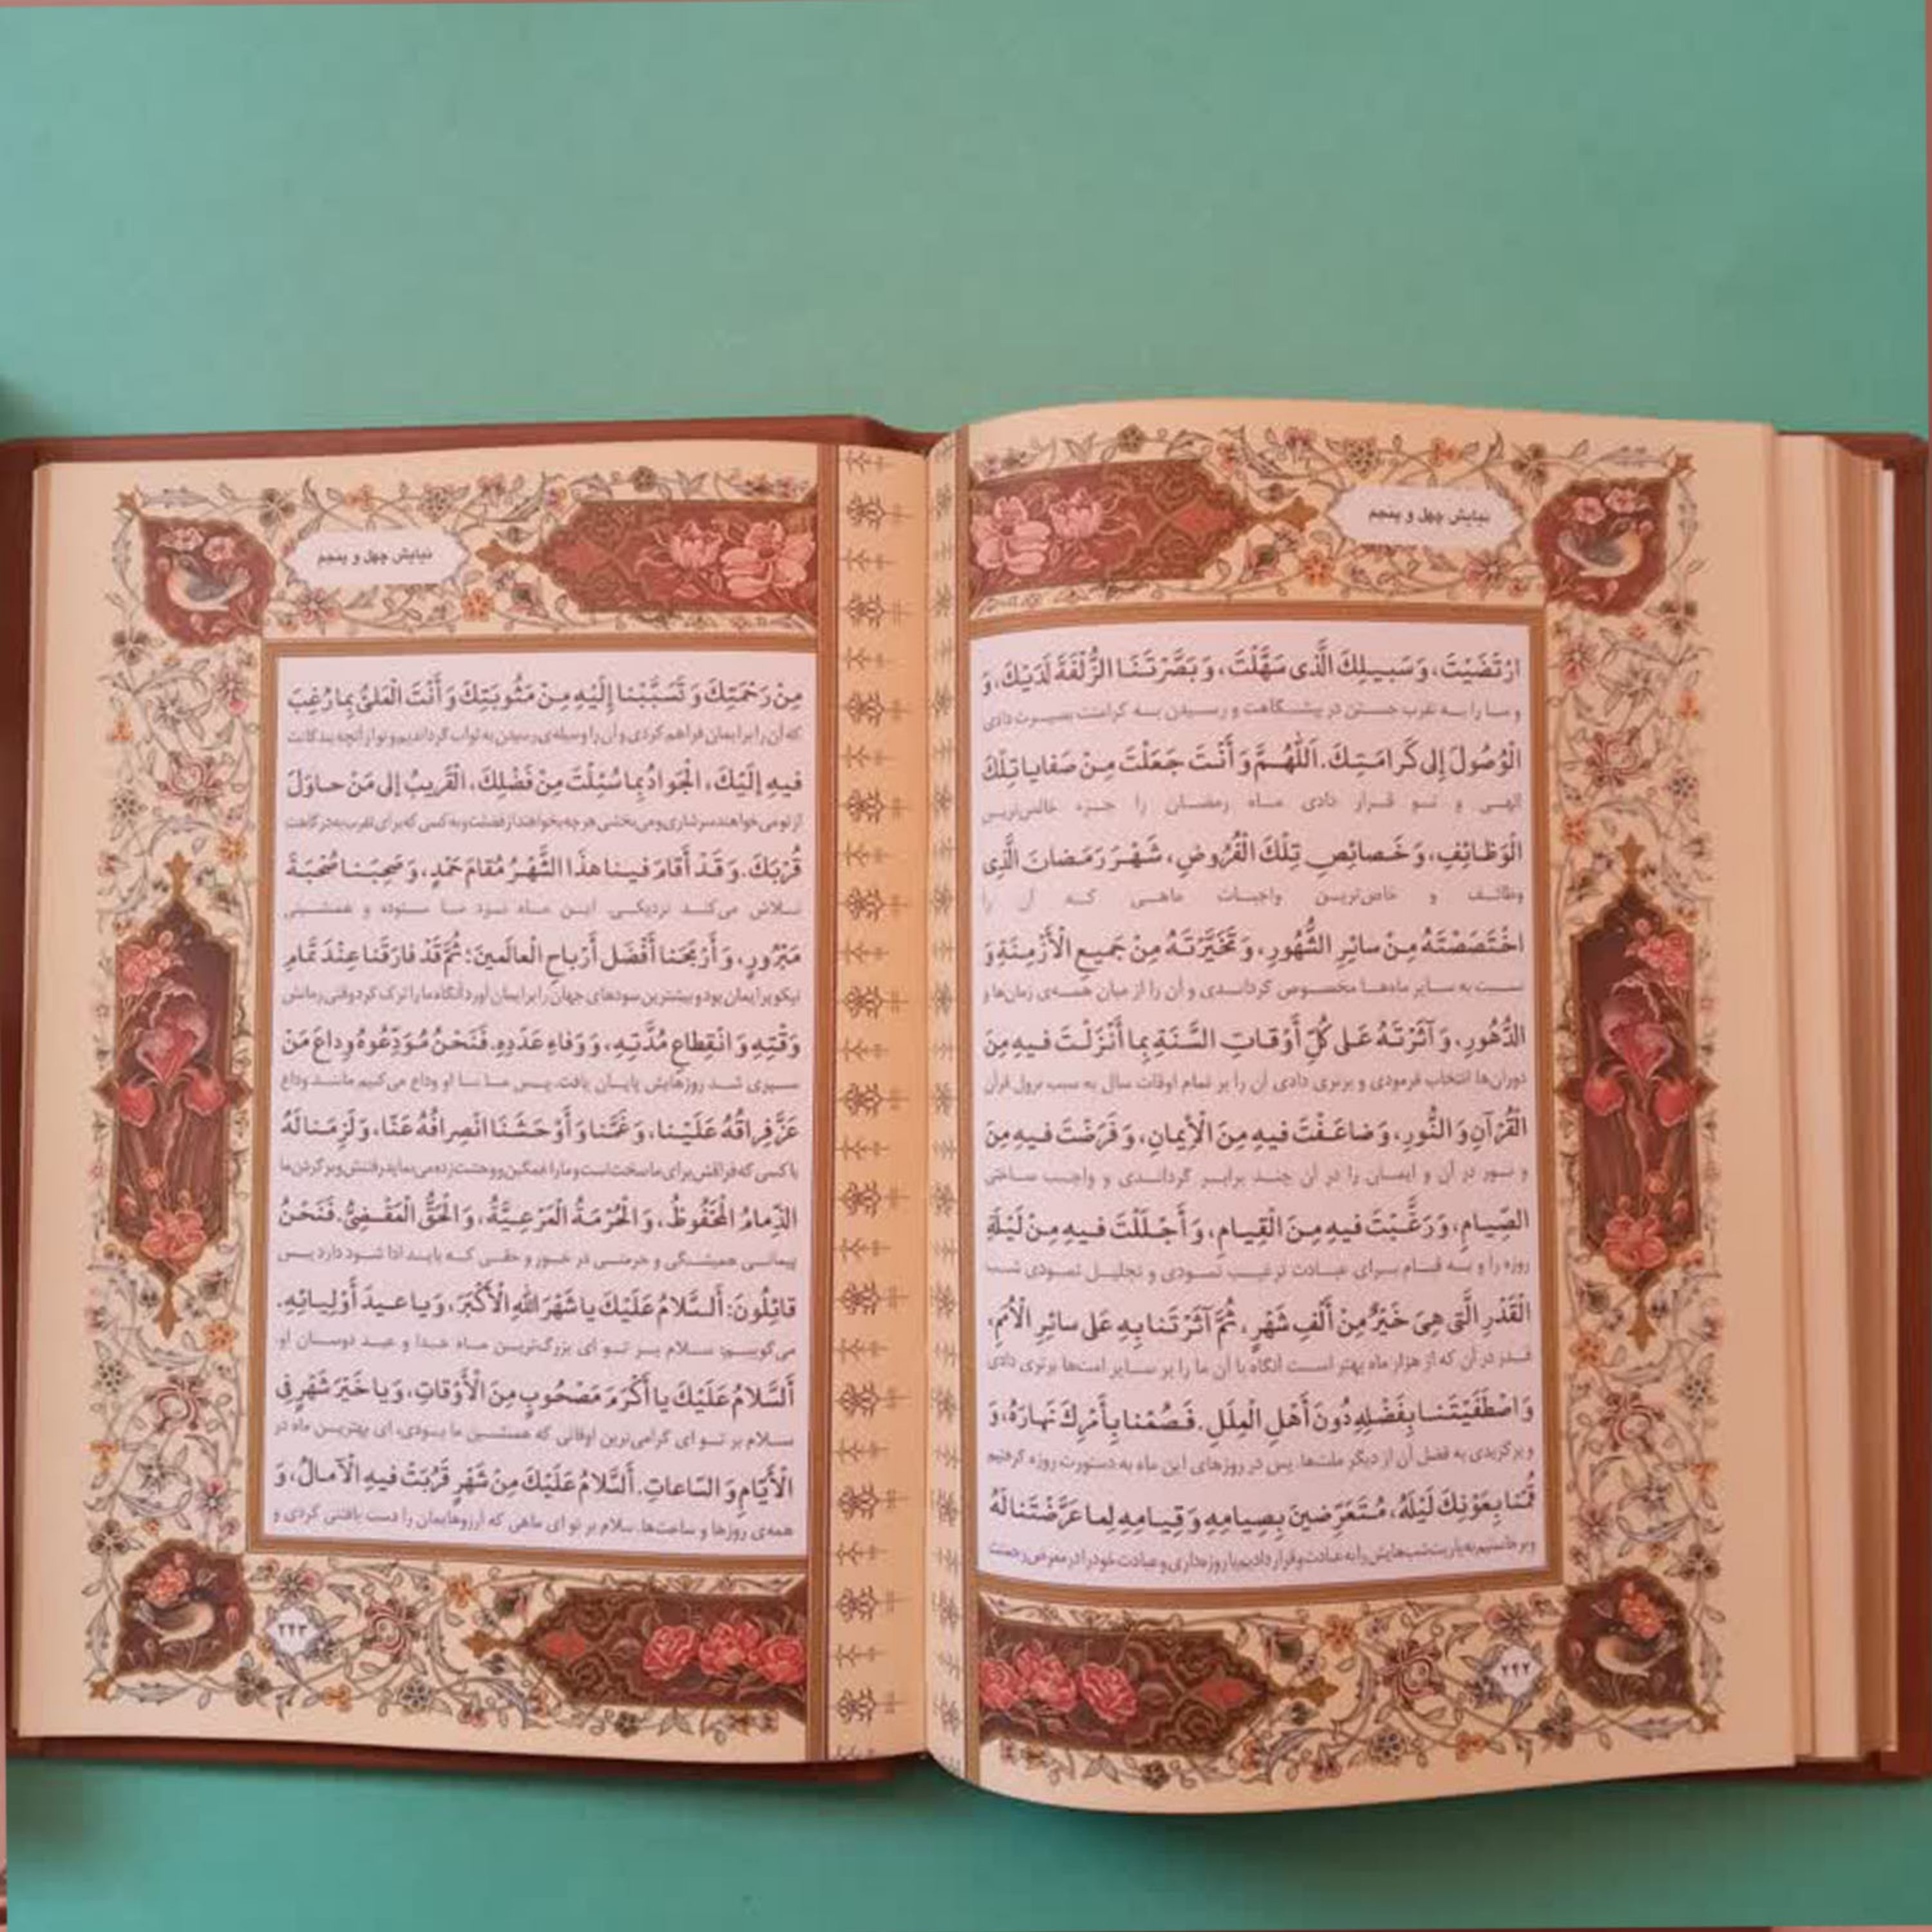 نیایش چهل و پنجم
ارْتَضَيْتَ، وَ سَبيلِكَ الَّذى سَهَّلْتَ، وَ بَصَّرْتَنَا الزُّلْفَةَ لَدَيْكَ، وَ
و ما را به تقرب جستن در پیشگاهت و رسیدن به کرامتت بصیرت دادی
الْوُصُولَ إلى كَرامَتِكَ. اَللّٰهُمَّ وَ أَنْتَ جَعَلْتَ مِنْ صَفايا تِلْكَ
الهی و تو قرار دادی ماه رمضان را جزء خالص‌ترین
الْوَظائِفِ، وَ خَصائِصِ تِلْكَ الْفُرُوضِ، شَهْرَ رَمَضانَ الَّذِى
وظائف و خاص‌ترین واجبات ماهی که آن را
اخْتَصَصْتَهُ مِنْ سائِرِ الشُّهُورِ، وَ تَخَيَّرْتَهُ مِنْ جَميعِ الْأَزْمِنَةِ وَ
نسبت به سایر ماه‌ها مخصوص گرداندی و آن را از میان همه‌ی زمان‌ها و
الدُّهُورِ، وَ آثَرْتَهُ عَلى كُلِّ أَوْقاتِ السَّنَةِ بِما أَنْزَلْتَ فيهِ مِنَ
دوران‌ها انتخاب فرمودی و برتری دادی آن را بر تمام اوقات سال به سبب نزول قرآن
الْقُرْآنِ وَ النُّورِ، وَ ضاعَفْتَ فيهِ مِنَ الْإيمانِ، وَ فَرَضْتَ فيهِ مِنَ
و نور در آن و ایمان را در آن چند برابر گرداندی و واجب ساختی
الصِّيامِ، وَ رَغَّبْتَ فيهِ مِنَ الْقِيامِ، وَ أَجْلَلْتَ فيهِ مِنْ لَيْلَةِ
روزه را و به قیام برای عبادت ترغیب نمودی و تجلیل نمودی شب
الْقَدْرِ الَّتى هِىَ خَيْرٌ مِنْ أَلْفِ شَهْرٍ، ثُمَّ آثَرْتَنا بِهِ عَلى سائِرِ الْأُمَمِ،
قدر در آن که از هزار ماه بهتر است آنگاه با آن ما را بر سایر امت‌ها برتری دادی
وَ اصْطَفَيْتَنا بِفَضْلِهِ دُونَ أَهْلِ الْمِلَلِ. فَصُمْنا بِأَمْرِكَ نَهارَهُ، وَ
و برگزیدی به فضل آن از دیگر ملت‌ها. پس در روزهای این ماه به دستورت روزه گرفتیم
قُمْنا بِعَوْنِكَ لَيْلَهُ، مُتَعَرِّضينَ بِصِيامِهِ وَ قِيامِهِ لِما عَرَّضْتَنا لَهُ
و برخاستیم به یاریت شب‌هایش را به عبادت و قرار دادیم با روزه‌داری و عبادت خود را در معرض رحمتت
۲۴۲
نیایش چهل و پنجم
مِنْ رَحْمَتِكَ وَ تَسَبَّبْنا إِلَيْهِ مِنْ مَثُوبَتِكَ وَ أَنْتَ الْمَلىُّ بِما رُغِبَ
که آن را برایمان فراهم کردی و آن را وسیله‌ی رسیدن به ثواب گرداندیم و تو از آنچه بندگانت
فيهِ إِلَيْكَ، الْجَوادُ بِما سُئِلْتَ مِنْ فَضْلِكَ، الْقَريبُ إِلى مَنْ حاوَلَ
از تو می‌خواهند سرشاری و می‌بخشی هر چه بخواهند از فضلت و به کسی که برای تقرب به درگاهت
قُرْبَكَ. وَ قَدْ أَقامَ فينا هذَا الشَّهْرُ مُقامَ حَمْدٍ، وَ صَحِبَنا صُحْبَةَ
تلاش می‌کند نزدیکی. این ماه نزد ما ستوده و همنشینی
مَبْرُورٍ، وَ أَرْبَحَنا أَفْضَلَ أَرْباحِ الْعالَمينَ؛ ثُمَّ قَدْ فارَقَنا عِنْدَ تَمامِ
نیکو برایمان بود و بیشترین سودهای جهان را برایمان آورد آنگاه ما را ترک کرد وقتی زمانش
وَقْتِهِ وَ انْقِطاعِ مُدَّتِهِ، وَ وَفاءِ عَدَدِهِ. فَنَحْنُ مُوَدِّعُوهُ وِداعَ مَنْ
سپری شد روزهایش پایان یافت. پس ما با او وداع می‌کنیم مانند وداع
عَزَّ فِراقُهُ عَلَيْنا، وَ غَمَّنا وَ أَوْحَشَنَا انْصِرافُهُ عَنّا، وَ لَزِمَنا لَهُ
با کسی که فراقش برای ما سخت است و ما را غمگین و وحشت‌زده می‌نماید رفتنش و بر گردن ما
الذِّمامُ الْمَحْفُوظُ، وَ الْحُرْمَةُ الْمَرْعِيَّةُ، وَ الْحَقُّ الْمَقْضِىُّ. فَنَحْنُ
پیمانی همیشگی و حرمتی در خور و حقی که باید ادا شود دارد پس
قائِلُونَ: أَلسَّلامُ عَلَيْكَ يا شَهْرَ اللهِ الْأَكْبَرَ، وَ يا عيدَ أَوْلِيائِهِ.
می‌گوییم: سلام بر تو ای بزرگ‌ترین ماه خدا و عید دوستان او.
أَلسَّلامُ عَلَيْكَ يا أَكْرَمَ مَصْحُوبٍ مِنَ الْأَوْقاتِ، وَ يا خَيْرَ شَهْرٍ فِى
سلام بر تو ای گرامی‌ترین اوقاتی که همنشین ما بودی، ای بهترین ماه در
الْأَيّامِ وَ السّاعاتِ. أَلسَّلامُ عَلَيْكَ مِنْ شَهْرٍ قَرُبَتْ فيهِ الْآمالُ، وَ
همه‌ی روزها و ساعت‌ها. سلام بر تو ای ماهی که آرزوهایمان را دست یافتنی کردی و
۲۴۳